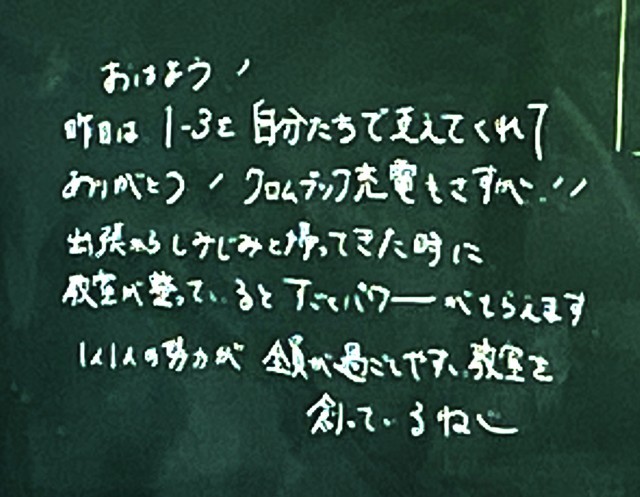 おはよう！
昨日は1-3を自分たちで支えてくれて
ありがとう！クロムブック充電もさすが!!
出張からしみじみと帰ってきた時に
教室が整っているとすごくパワーがもらえます
1人1人の努力が全員が過ごしやすい教室を
創っているね